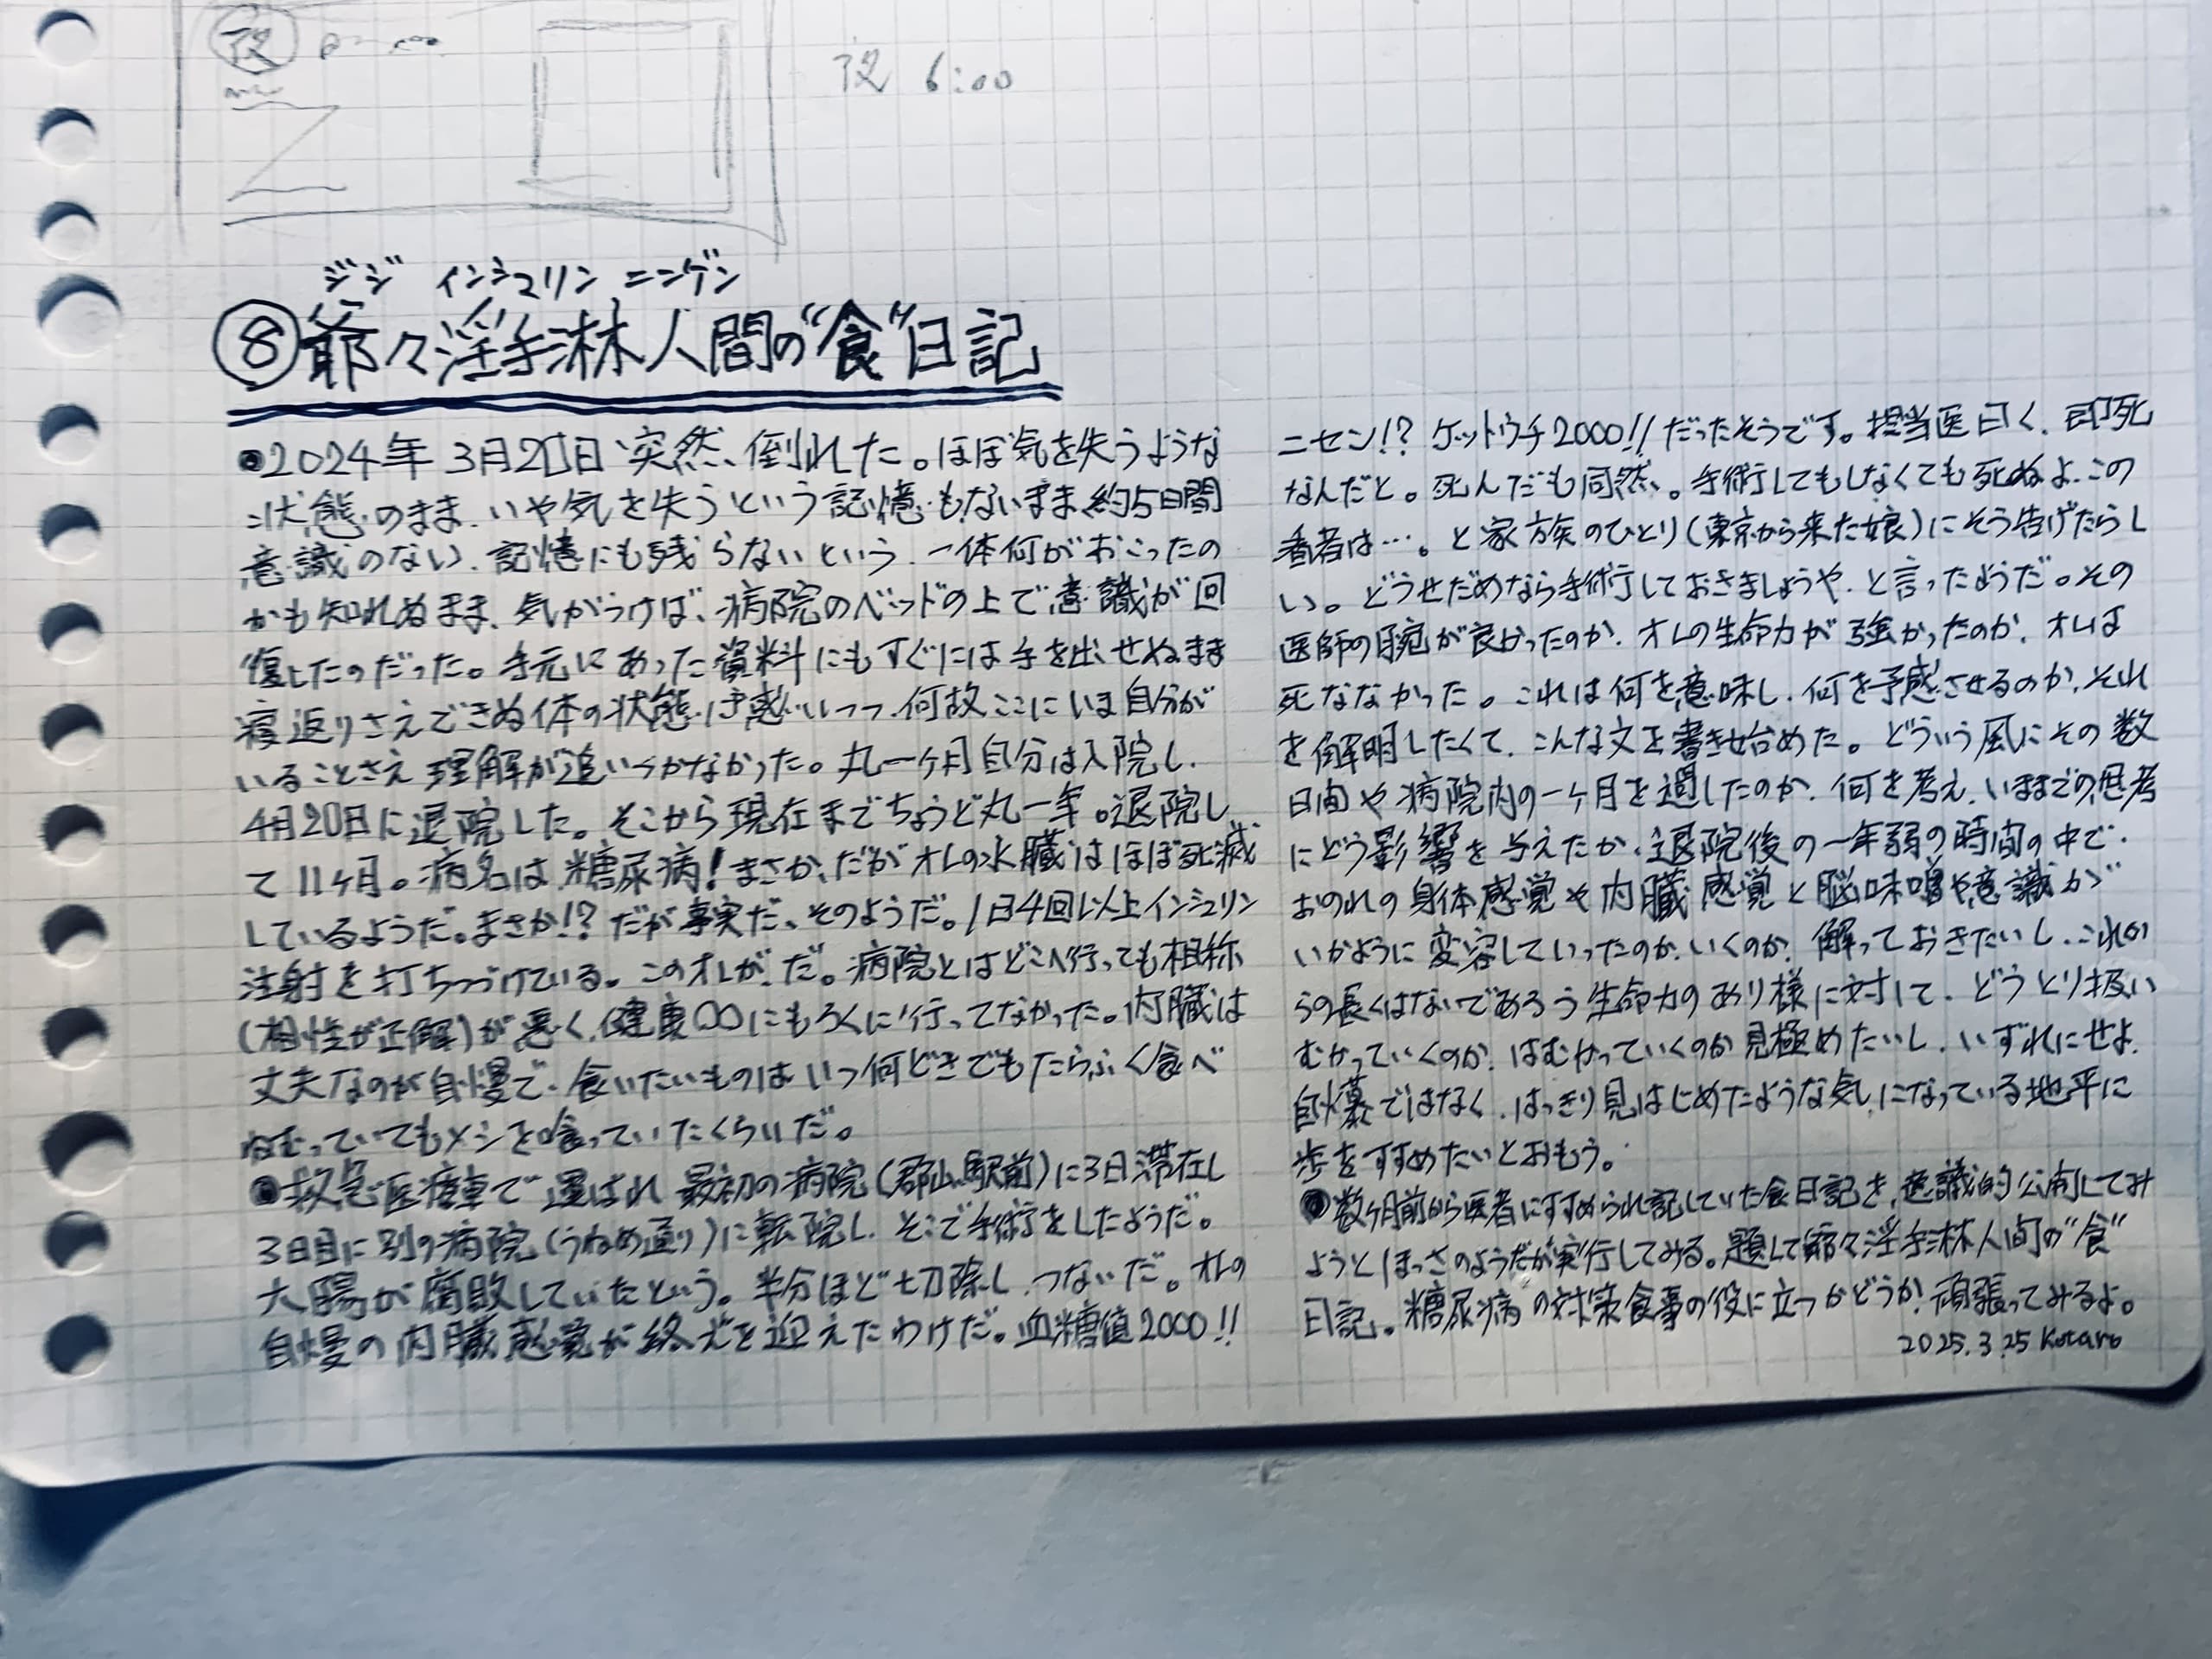 夜
夜 6:00
ジジ インシュリン ニンゲン
⑧爺々淫手淋人間の“食”日記
●2024年3月20日突然、倒れた。ほぼ気を失うような
状態のまま、いや気を失うという記憶もないまま、約5日間
意識のない、記憶にも残らないという、一体何がおこったの
かも知れぬまま、気がつけば、病院のベッドの上で意識が回
復したのだった。手元にあった資料にもすぐには手を出せぬまま
寝返りさえできぬ体の状態に戸惑いつつ、何故ここにいま自分が
いることさえ理解が追いつかなかった。丸一ヶ月自分は入院し、
4月20日に退院した。そこから現在までちょうど丸一年。退院し
て11ヶ月。病名は、糖尿病!まさか、だがオレの水臓はほぼ死滅
しているようだ。まさか!?だが事実だ、そのようだ。1日4回以上インシュリン
注射を打ちつづけている。このオレが、だ。病院とはどこへ行っても相称
(相性が正解)が悪く、健康〇〇にもろくに行ってなかった。内臓は
丈夫なのが自慢で、食いたいものはいつ何どきでもたらふく食べ
ねむっていてもメシを喰っていたくらいだ。
●救急医療車で運ばれ最初の病院(郡山駅前)に3日滞在し
3日目に別の病院(うねめ通り)に転院し、そこで手術をしたようだ。
大腸が腐敗していたという。半分ほど切除し、つないだ。オレの
自慢の内臓感覚が終えを迎えたわけだ。血糖値2000!!
ニセン!? ケットウチ2000!!だったそうです。担当医曰く、即死
なんだと。死んだも同然、。手術してもしなくても死ぬよ、この
患者は…。と家族のひとり(東京から来た娘)にそう告げたらし
い。どうせだめなら手術しておきましょうや、と言ったようだ。その
医師の腕が良かったのか、オレの生命力が強かったのか、オレは
死ななかった。これは何を意味し、何を予感させるのか、それ
を解明したくて、こんな文を書き始めた。どういう風にその数
日間や病院内の一ヶ月を過したのか、何を考え、いままでの思考
にどう影響を与えたか、退院後の一年弱の時間の中で、
おのれの身体感覚や内臓感覚と脳味噌や意識が
いかように変容していったのか、いくのか、解っておきたいし、これか
らの長くはないであろう生命力のあり様に対して、どうとり扱い
むかっていくのか、はむかっていくのか見極めたいし、いずれにせよ、
自爆ではなく、はっきり見はじめたような気になっている地平に
歩をすすめたいとおもう。
●数ヶ月前から医者にすすめられ記していた食日記を、意識的公開してみ
ようとほっさのようだが実行してみる。題して爺々淫手淋人間の“食”
日記。糖尿病の対策食事の役に立つかどうか、頑張ってみるよ。
2025.3.25 Kotaro